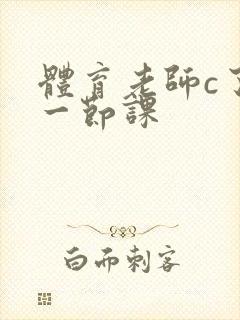 體育老師c了
一節課
白而刺客